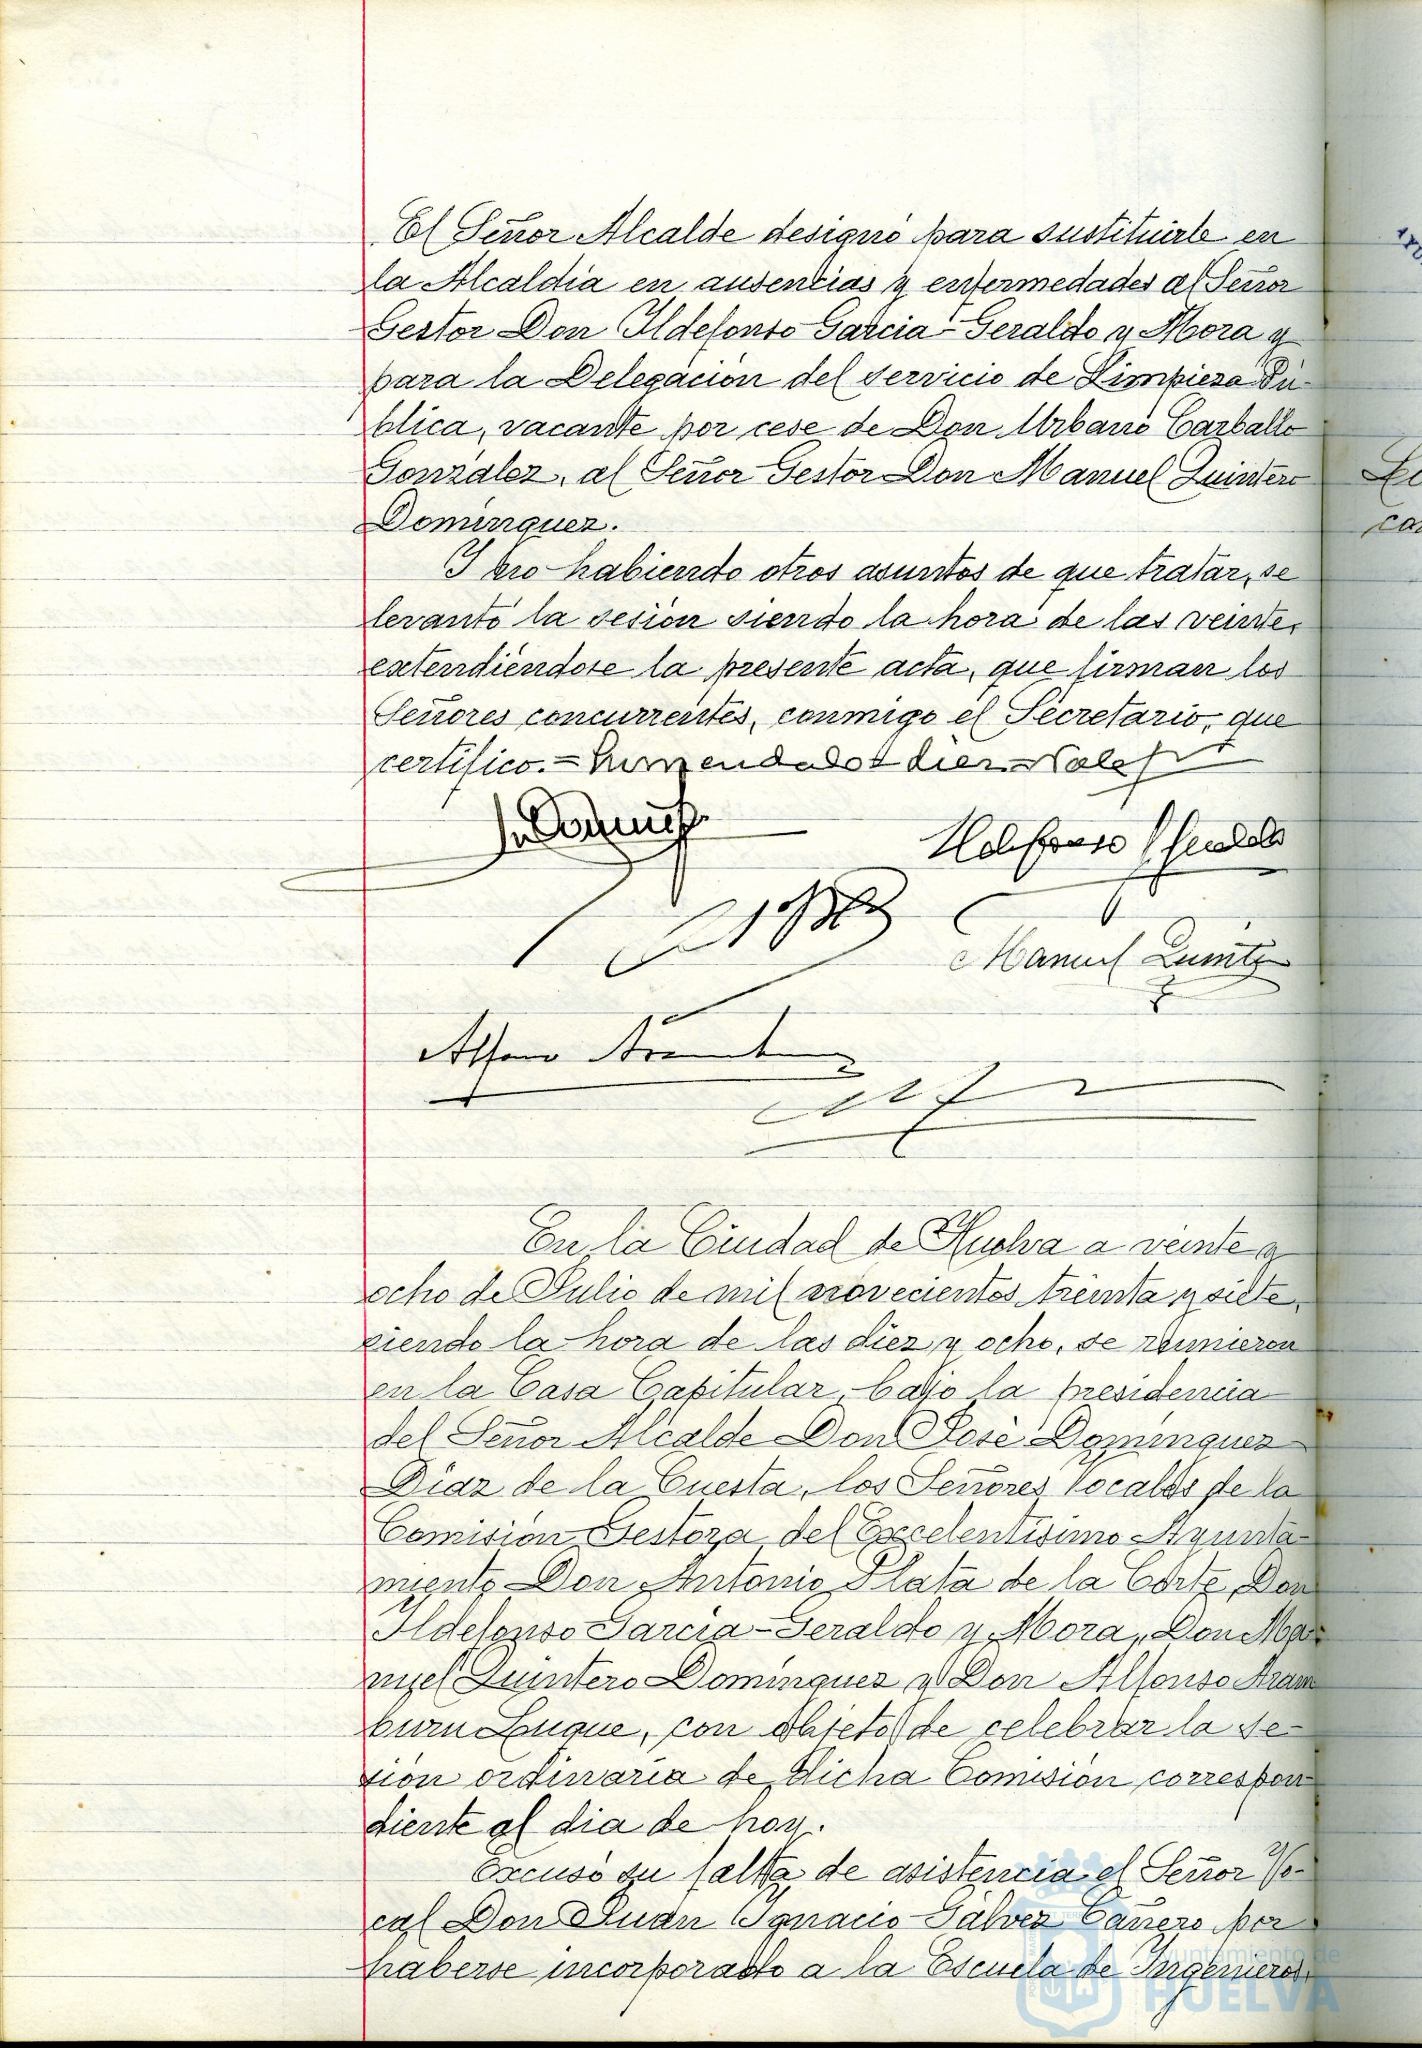 El Señor Alcalde designó para sustituirle en
la Alcaldia en ausencias y enfermedades al Señor
Gestor Don Ildefonso Garcia-Geraldo y Mora y
para la Delegación del servicio de Limpieza Pú-
blica, vacante por cese de Don Urbano Carballo
González, al Señor Gestor Don Manuel Quintero
Dominguez.
Y no habiendo otros asuntos de que tratar, se
levantó la sesión siendo la hora de las veinte,
extendiéndose la presente acta, que firman los
Señores concurrentes, conmigo el Secretario, que
certifico.=
Ildefonso G Geraldo
Manuel Quintero
Alfonso Aramburu
En la Ciudad de Huelva a veinte y
ocho de Julio de mil novecientos treinta y siete,
siendo la hora de las diez y ocho, se reunieron
en la Casa Capitular, bajo la presidencia
del Señor Alcalde Don José Dominguez
Diaz de la Cuesta, los Señores Vocales de la
Comisión Gestora del Excelentísimo Ayunta-
miento Don Antonio Plata de la Corte, Don
Ildefonso Garcia-Geraldo y Mora, Don Ma-
nuel Quintero Dominguez y Don Alfonso Aram
buru Luque, con objeto de celebrar la se-
sión ordinaria de dicha Comisión correspon
diente al dia de hoy.
Excusó su falta de asistencia el Señor Vo-
cal Don Juan Ignacio Gálvez Cañero por
haberse incorporado a la Escuela de Ingenieros,
Ayuntamiento de
HUELVA